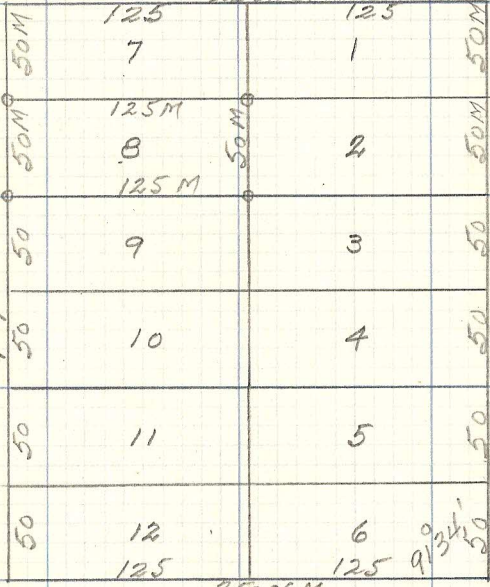 125 125
50M 7 1 50M
125M
50M 8 50M 2 50M
125M
50 9 3 50
50 10 4 50
50 11 5 50
50 12 6 91°34' 50
125 125